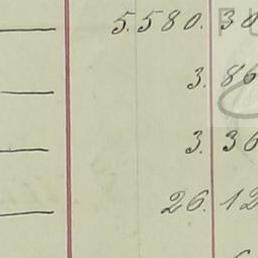 5.580. 30
3. 86
3. 36
26. 12